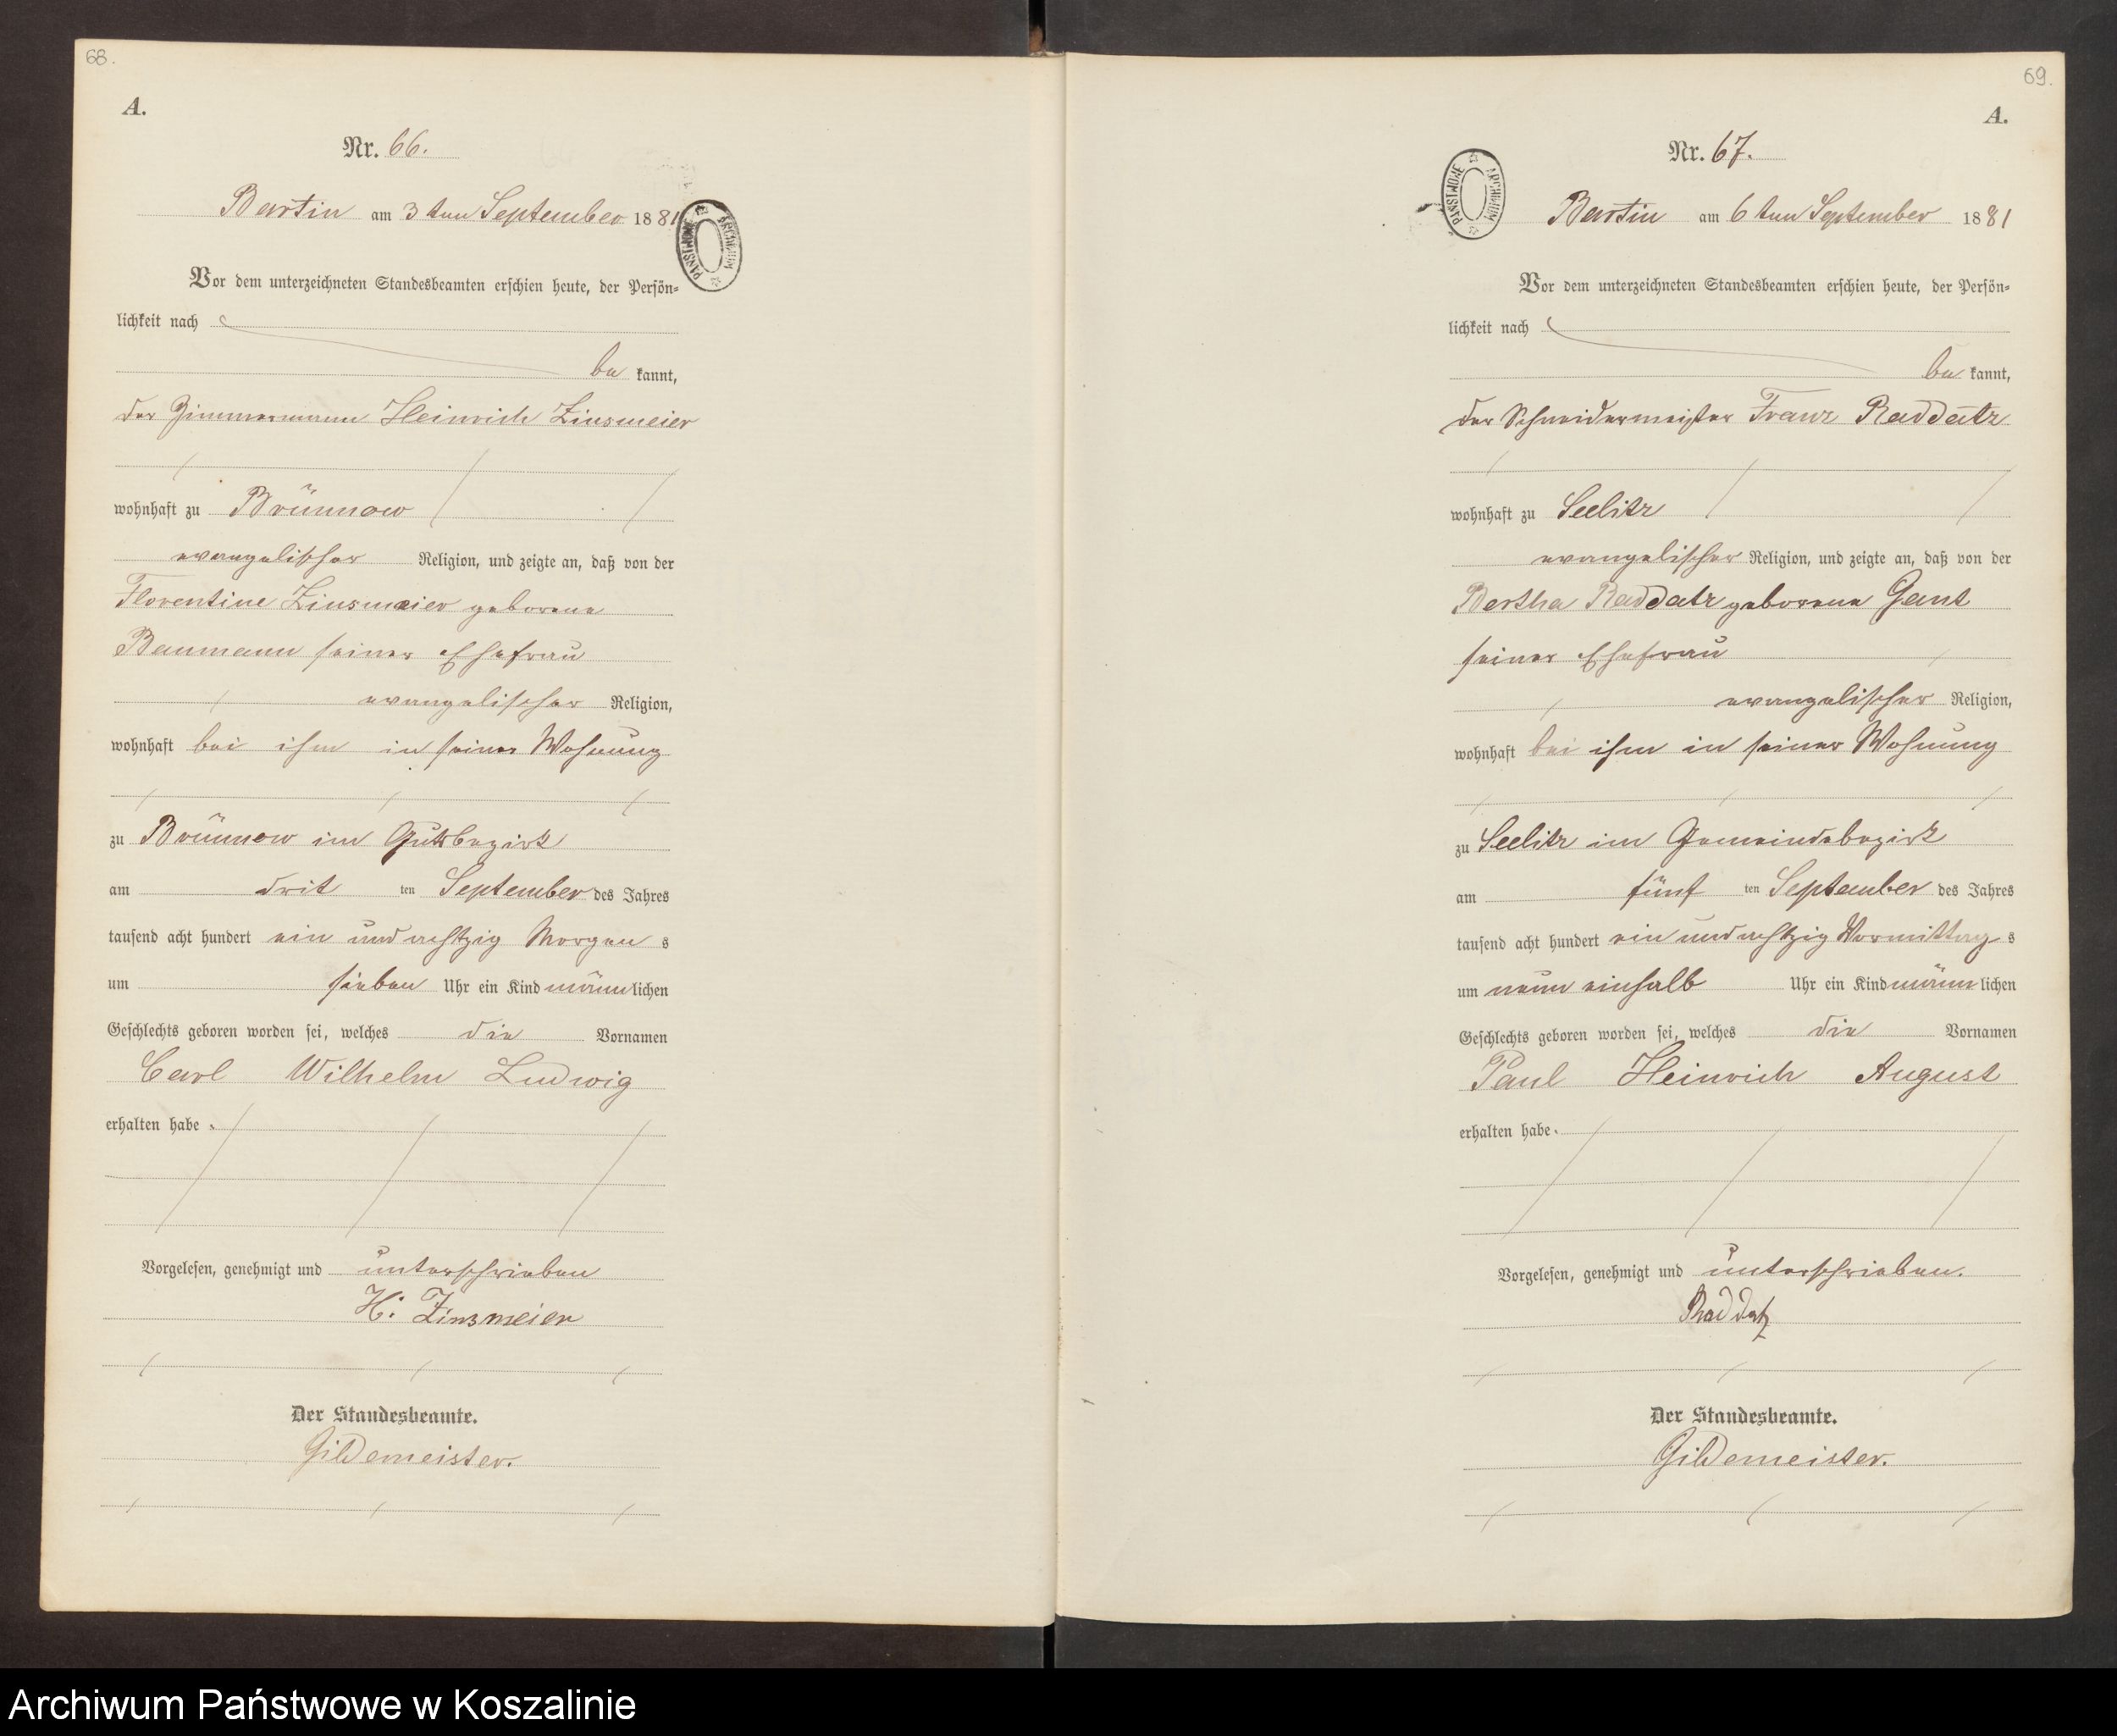 68.
A.
Nr. 66.
Bartin am 3ten September 1881
Vor dem unterzeichneten Standesbeamten erschien heute, der Persön-
lichkeit nach
be kannt,
der Zimmermann Heinrich Zinsmeier
wohnhaft zu Brünnow
evangelischer Religion, und zeigte an, daß von der
Florentine Zinsmeier geborene
Baumann seiner Ehefrau
evangelischer Religion,
wohnhaft bei ihm in seiner Wohnung
zu Brünnow im Gutsbezirk
am drit ten September des Jahres
tausend acht hundert ein und achtzig Morgen s
um sieben Uhr ein Kind männlichen
Geschlechts geboren worden sei, welches die Vornamen
Carl Wilhelm Ludwig
erhalten habe.
Vorgelesen, genehmigt und unterschrieben
H. Zinsmeier
Der Standesbeamte.
Gildemeister.
ARCHIWUM PAŃSTWOWE
69.
A.
Nr. 67.
Bartin am 6ten September 1881
Vor dem unterzeichneten Standesbeamten erschien heute, der Persön-
lichkeit nach
be kannt,
der Schneidermeister Franz Raddatz
wohnhaft zu Seelitz
evangelischer Religion, und zeigte an, daß von der
Bertha Raddatz geborene Gant
seiner Ehefrau
evangelischer Religion,
wohnhaft bei ihm in seiner Wohnung
zu Seelitz im Gemeindebezirk
am fünf ten September des Jahres
tausend acht hundert ein und achtzig Vormittag s
um neun einhalb Uhr ein Kind männ lichen
Geschlechts geboren worden sei, welches die Vornamen
Paul Heinrich August
erhalten habe.
Vorgelesen, genehmigt und unterschrieben.
Raddatz
Der Standesbeamte.
Gildemeister.
ARCHIWUM PAŃSTWOWE
Archiwum Państwowe w Koszalinie